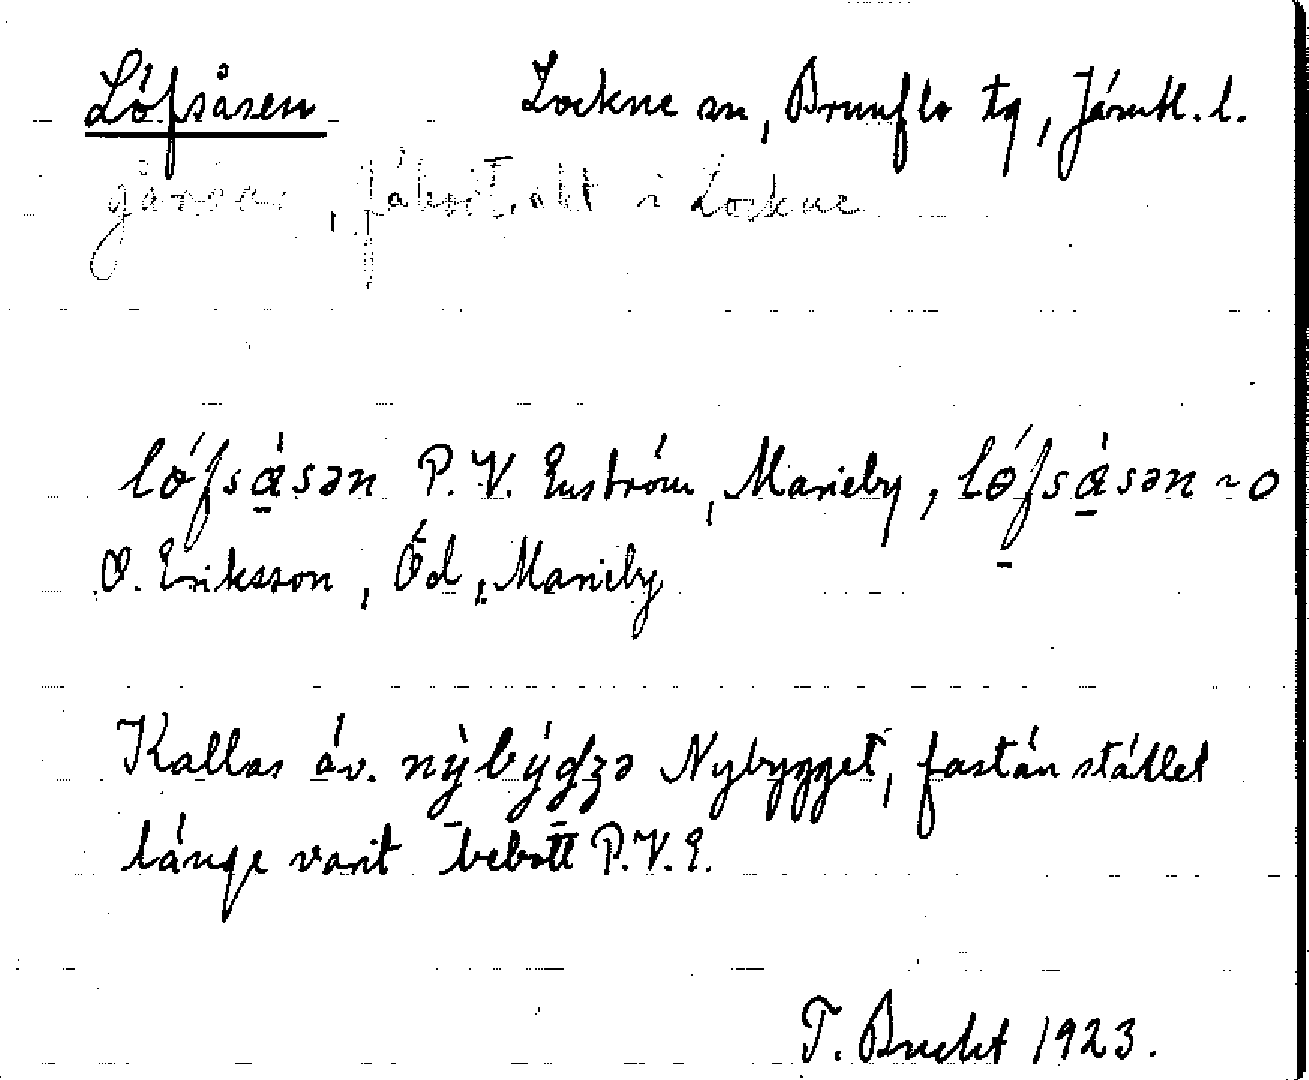 Löfsåsen Lockne sn, Brunflo tg, Jämtl. l.
gårdar, fäbost. allt i Lockne
lófsåsən P. V. Enström, Marieby, lófsåsən ~ o
O. Eriksson, Öd, Marieby
Kallas äv. nỳbýgʒə Nybygget, fastän stället
länge varit bebott P.V.E.
T. Bucht 1923.